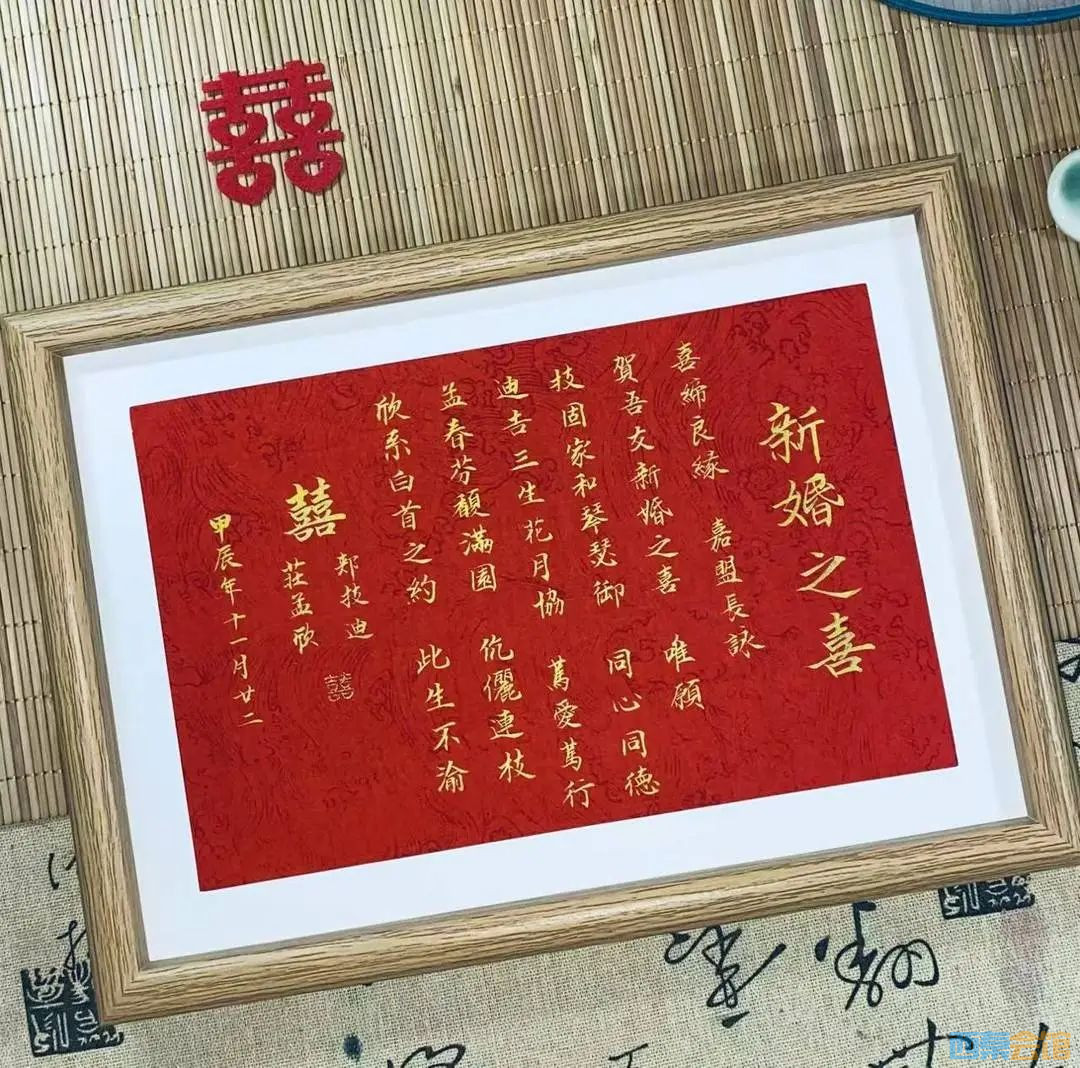 囍
新婚之喜
喜締良緣 嘉盟長詠
賀吾友新婚之喜 唯願
技固家和琴瑟御 同心同德
迪吉三生花月協 篤愛篤行
孟春芬馥滿園 伉儷連枝
欣系白首之約 此生不渝
鄭技迪
囍
囍
莊孟欣
甲辰年十一月廿二